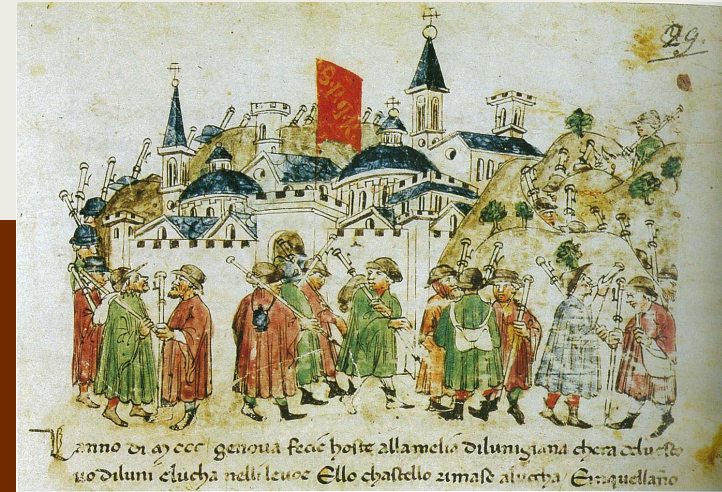 29.
S.P.Q.R.
Lanno di MCCC genova fecie hoste allamelia dilunigiana chera delvesco
vo diluni e lucha nelli levoe Ello chastello rimase a lucha Einquellano